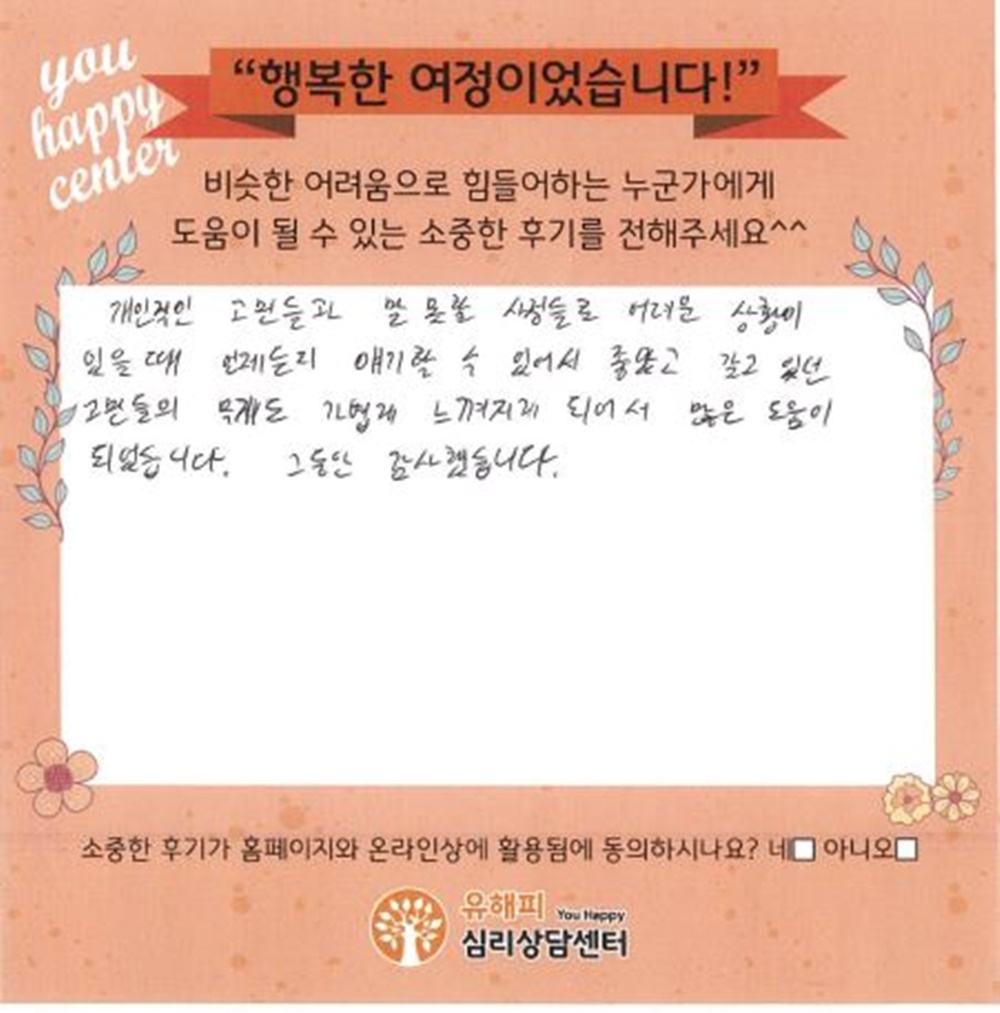 you
happy
center
“행복한 여정이었습니다!”
비슷한 어려움으로 힘들어하는 누군가에게
도움이 될 수 있는 소중한 후기를 전해주세요^^
개인적인 고민들과 말 못할 사정들로 어려운 상황이
있을 때 언제든지 얘기할 수 있어서 좋았고 갖고 있던
고민들의 무게도 가볍게 느껴지게 되어서 많은 도움이
되었습니다. 그동안 감사했습니다.
소중한 후기가 홈페이지와 온라인상에 활용됨에 동의하시나요? 네□ 아니오□
유해피 You Happy
심리상담센터